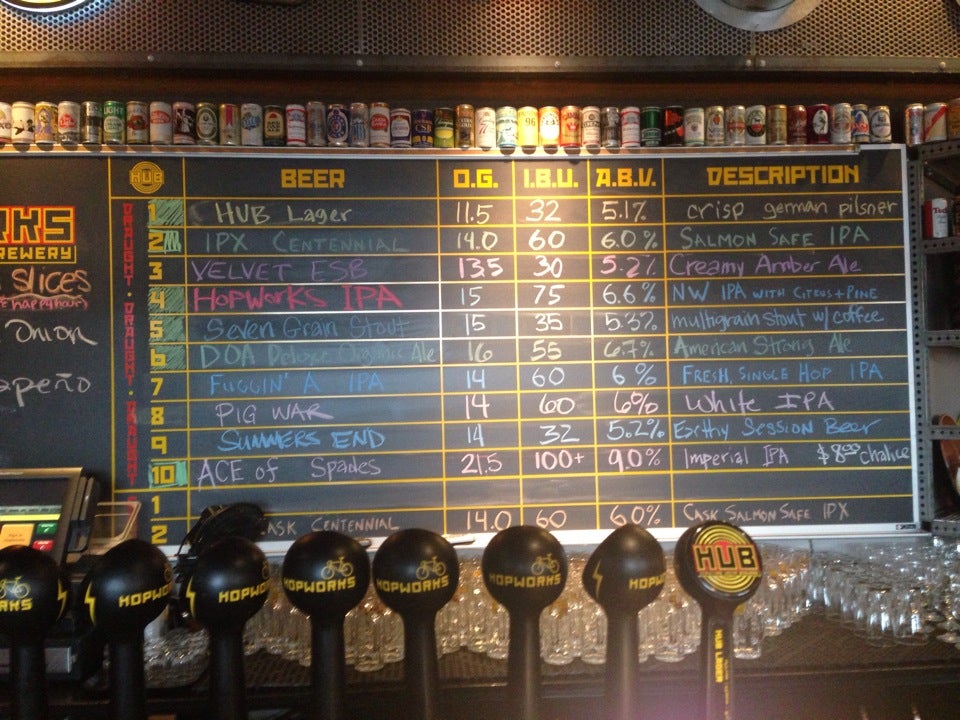 HUB BEER O.G. I.B.U. A.B.V. DESCRIPTION
1 HUB Lager 11.5 32 5.1% crisp german pilsner
2 IPX CENTENNIAL 14.0 60 6.0% SALMON SAFE IPA
3 VELVET ESB 13.5 30 5.2% Creamy Amber Ale
4 HOPWORKS IPA 15 75 6.6% NW IPA WITH CITRUS + PINE
5 Seven Grain Stout 15 35 5.3% multigrain stout w/ coffee
6 DOA Deluxe Organic Ale 16 55 6.7% American Strong Ale
7 FUGGIN' A IPA 14 60 6% FRESH, SINGLE HOP IPA
8 PIG WAR 14 60 6% White IPA
9 SUMMERS END 14 32 5.2% Earthy Session Beer
10 ACE of Spades 21.5 100+ 9.0% Imperial IPA $8.00 chalice
1
2 CASK CENTENNIAL 14.0 60 6.0% CASK SALMON SAFE IPX
DRAUGHT · DRAUGHT · DRAUGHT
RKS
REWERY
SLICES
happyhour)
ONION
apeño
RKS
HOPWOR
HOPWO
HOPWORKS
HOPWORKS
HOPWORKS
HOPW
HUB
HUB LAGER